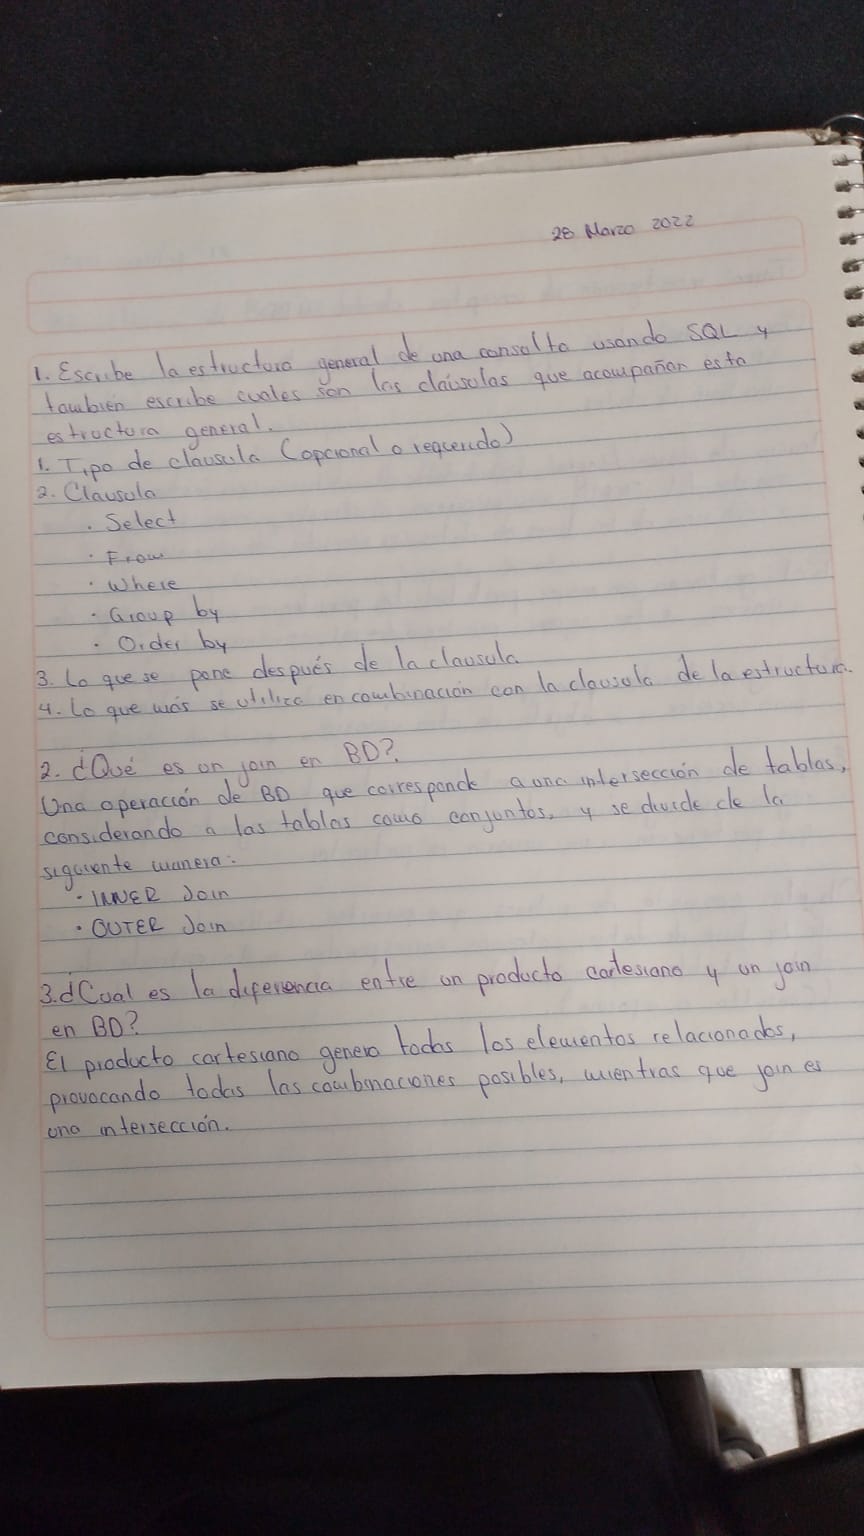 28 Marzo 2022
1. Escribe la estructura general de una consulta usando SQL y
también escribe cuales son las claúsulas que acompañan esta
estructura general.
1. Tipo de cláusula (opcional o requerido)
2. Clausula
• Select
• From
• Where
• Group by
• Order by
3. Lo que se pone después de la clausula
4. Lo que más se utiliza en combinación con la clausula de la estructura.
2. ¿Qué es un join en BD?
Una operación de BD que corresponde a una intersección de tablas,
considerando a las tablas como conjuntos, y se divide de la
siguiente manera:
• INNER Join
• OUTER Join
3. ¿Cual es la diferencia entre un producto cartesiano y un join
en BD?
El producto cartesiano genera todos los elementos relacionados,
provocando todas las combinaciones posibles, mientras que join es
una intersección.